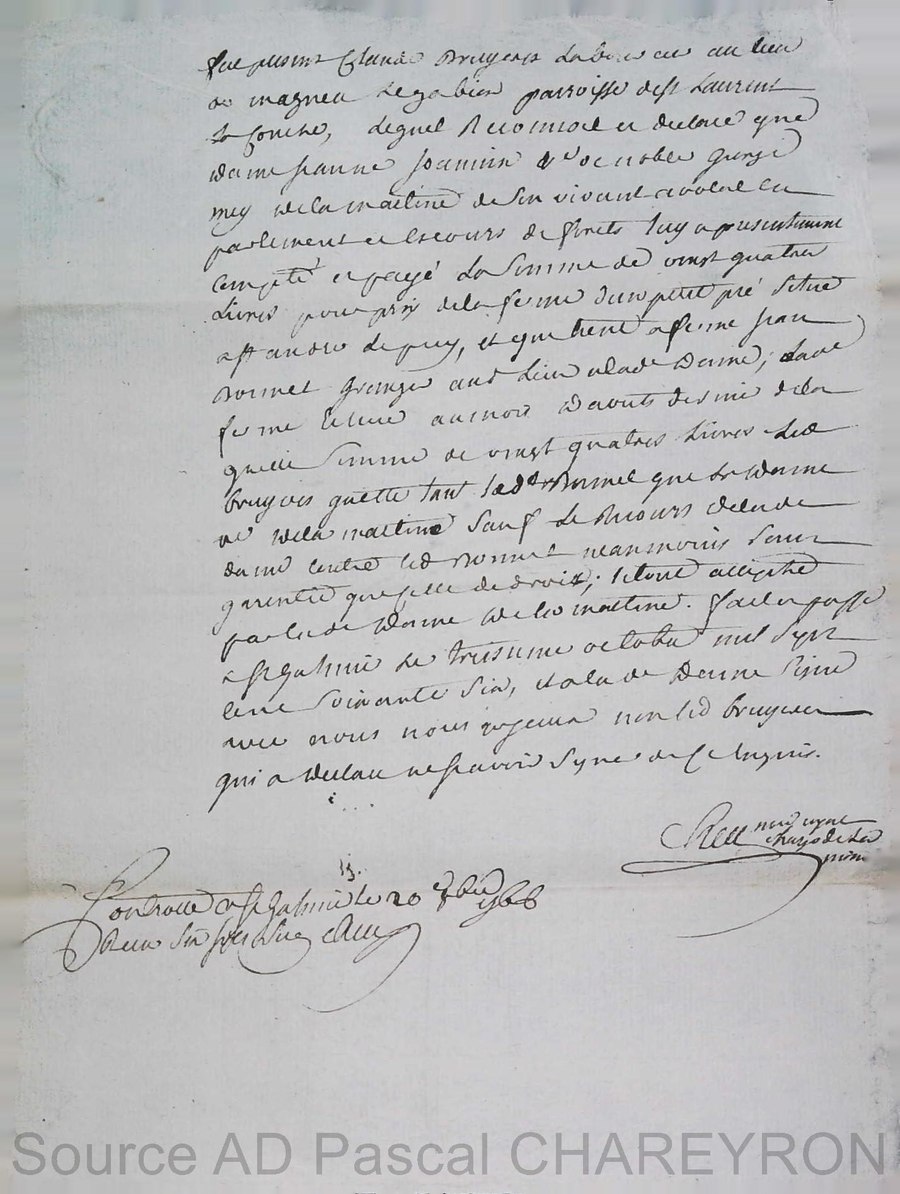 fut present Claude Bruyeres Laboureur au lieu
de magneu le gabion parroisse de st Laurent
la Conche, lequel Reconnoit et declare que
dame jeanne Ve de noble
mey de la martine de son vivant avocat en
parlement et es cours de forets luy a presentement
compté et payé la somme de vingt quatre
Livres pour prix de la ferme d'un petit pré Situé
a st andré le puy, et que tient a ferme jean
Bonnet Granger aud Lieu de lad Dame; Lad
ferme Echue au mois d'aout dernier de la
quelle somme de vingt quatre Livres Led
bruyeres quitte tant led Bonnet que la Dame
de la martine sauf le Recours de lade
dame contre led Bonnet neanmoins sans
garentie que celle de droit; le tout accepté
par lade Dame de la martine. fait et passé
a st galmier le treizieme octobre mil sept
cent soixante six, et a lade Dame signé
avec nous non led bruyeres
qui a declaré ne sçavoir signer de ce enquis.
Controllé a st galmier le 20 8bre 1766
Reçu six sols
Source AD Pascal CHAREYRON